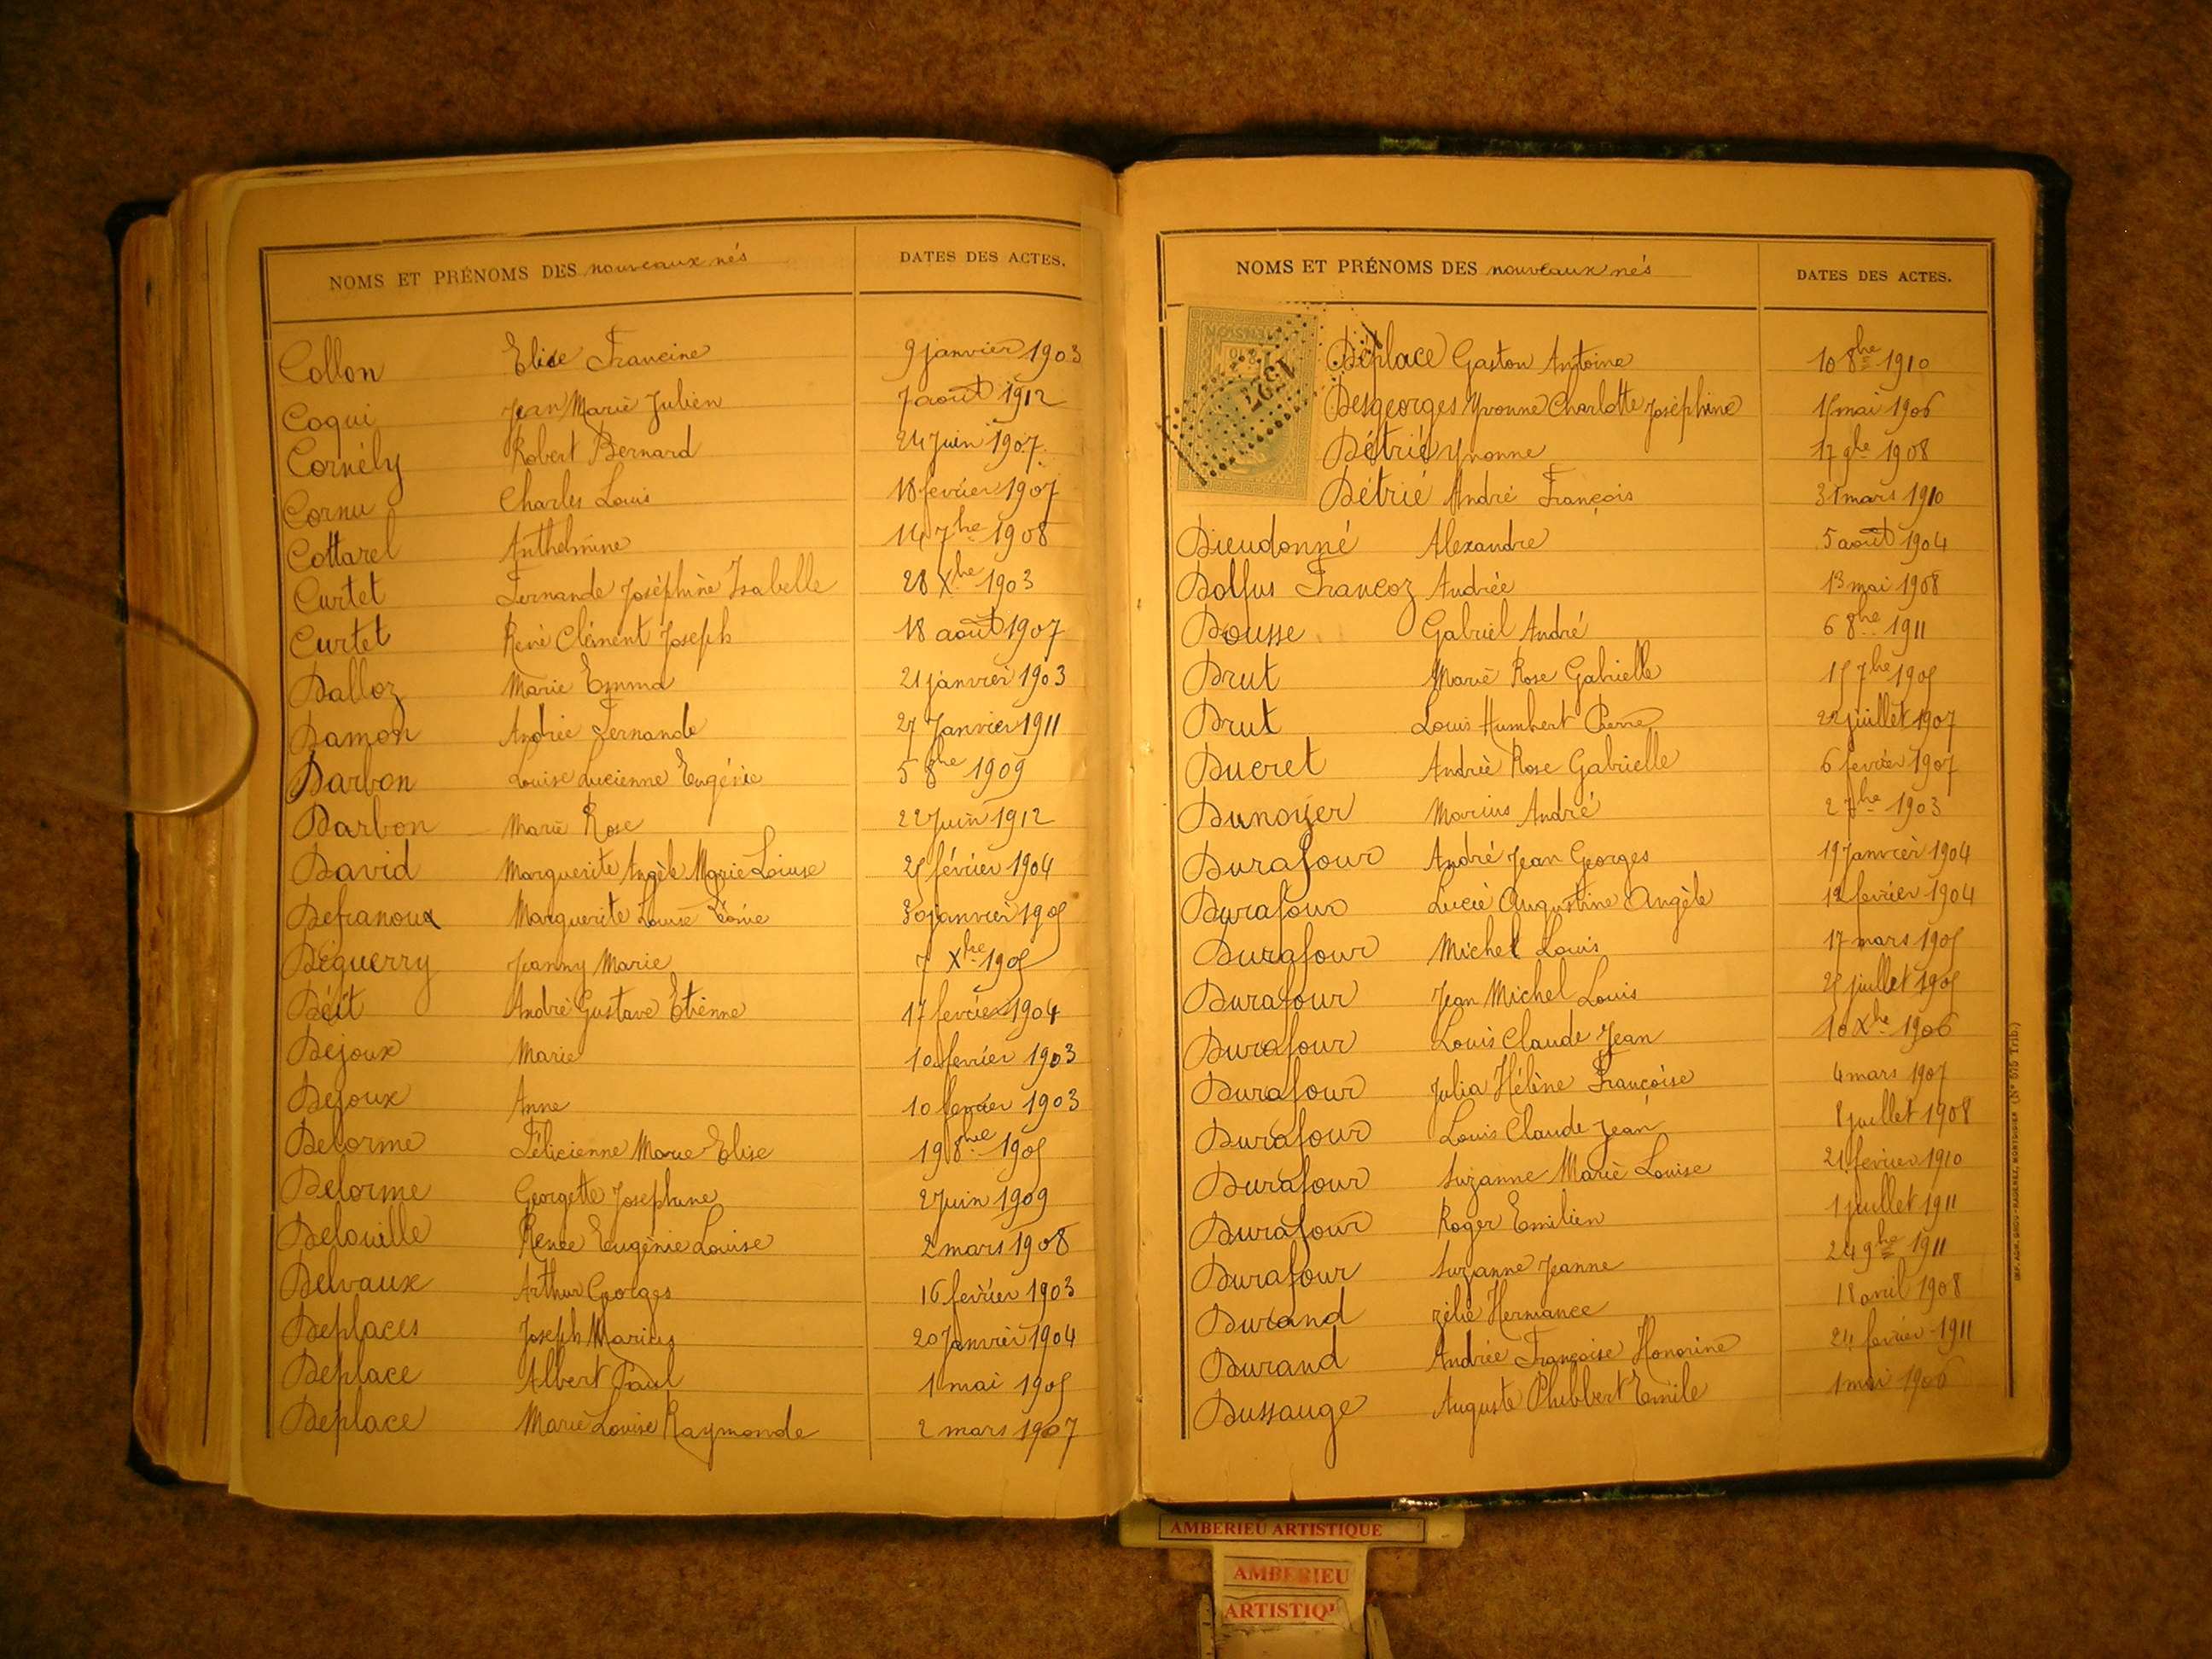 NOMS ET PRÉNOMS DES nouveaux nés DATES DES ACTES.
Collon Elise Francine 9 janvier 1903
Coqui Jean Marie Julien 7 août 1912
Cornély Robert Bernard 24 Juin 1907
Cornu Charles Louis 18 fevrier 1907
Cottarel Anthelmine 14 7bre 1908
Curtet Fernande Joséphine Isabelle 28 Xbre 1903
Curtet René Clément Joseph 18 août 1907
Dalloz Marie Emma 21 janvier 1903
Damon Andrée Fernande 27 Janvier 1911
Darbon Louise Lucienne Eugénie 5 8bre 1909
Darbon Marie Rose 22 Juin 1912
David Marguerite Angèle Marie Louise 25 février 1904
Defranoux Marguerite Louise Léonie 30 janvier 1905
Déguerry Jeanny Marie 7 Xbre 1905
Déit André Gustave Etienne 17 fevrier 1904
Dejoux Marie 10 fevrier 1903
Dejoux Anne 10 fevrier 1903
Delorme Félicienne Marie Elise 19 8bre 1905
Delorme Georgette Josephine 2 Juin 1909
Delouille Renée Eugénie Louise 2 mars 1908
Delvaux Arthur Georges 16 février 1903
Deplaces Joseph Marius 20 Janvier 1904
Deplace Albert Paul 1 mai 1905
Deplace Marie Louise Raymonde 2 mars 1907
NOMS ET PRÉNOMS DES nouveaux nés DATES DES ACTES.
1527
Déplace Gaston Antoine 10 8bre 1910
Desgeorges Yvonne Charlotte Joséphine 15 mai 1906
Détrié Yvonne 17 9bre 1908
Détrié André François 31 mars 1910
Dieudonné Alexandre 5 août 1904
Dolfus Francoz Andrée 13 mai 1908
Dousse Gabriel André 6 8bre 1911
Drut Marie Rose Gabrielle 15 7bre 1905
Drut Louis Humbert Pierre 22 juillet 1907
Ducret Andrée Rose Gabrielle 6 fevrier 1907
Dunoyer Marius André 2 7bre 1903
Durafour André Jean Georges 19 Janvier 1904
Durafour Lucie Augustine Angèle 12 fevrier 1904
Durafour Michel Louis 17 mars 1905
Durafour Jean Michel Louis 25 juillet 1905
Durafour Louis Claude Jean 10 Xbre 1906
Durafour Julia Hélène Françoise 4 mars 1907
Durafour Louis Claude Jean 8 juillet 1908
Durafour Suzanne Marie Louise 21 fevrier 1910
Durafour Roger Emilien 1 juillet 1911
Durafour Suzanne Jeanne 24 9bre 1911
Durand Zélie Hermance 18 avril 1908
Durand Andrée Françoise Honorine 24 fevrier 1911
Dussauge Auguste Philibbert Emile 1 mai 1906
AMBERIEU ARTISTIQUE
AMBERIEU
ARTISTIQ